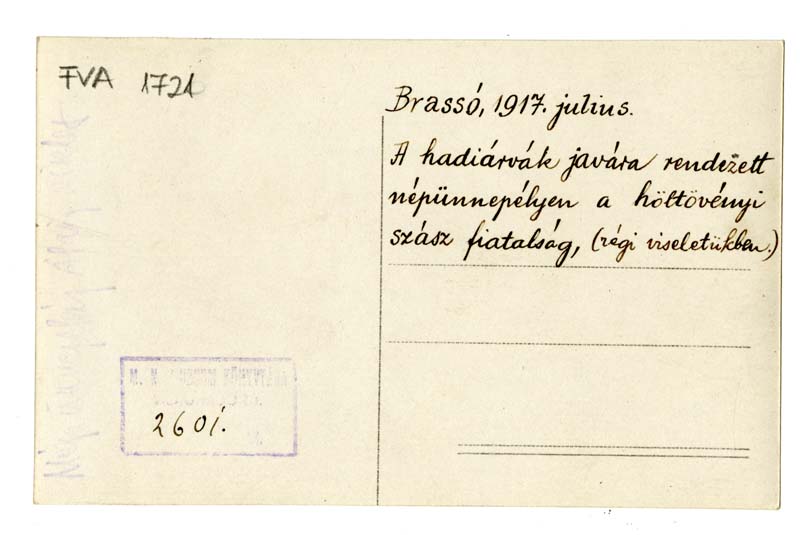 FVA 1721
Brassó, 1917. július.
A hadiárvák javára rendezett
népünnepélyen a höltövényi
szász fiatalság, (régi viseletükben.)
M. N. MUZEUM KÖNYVTÁRA
2601.